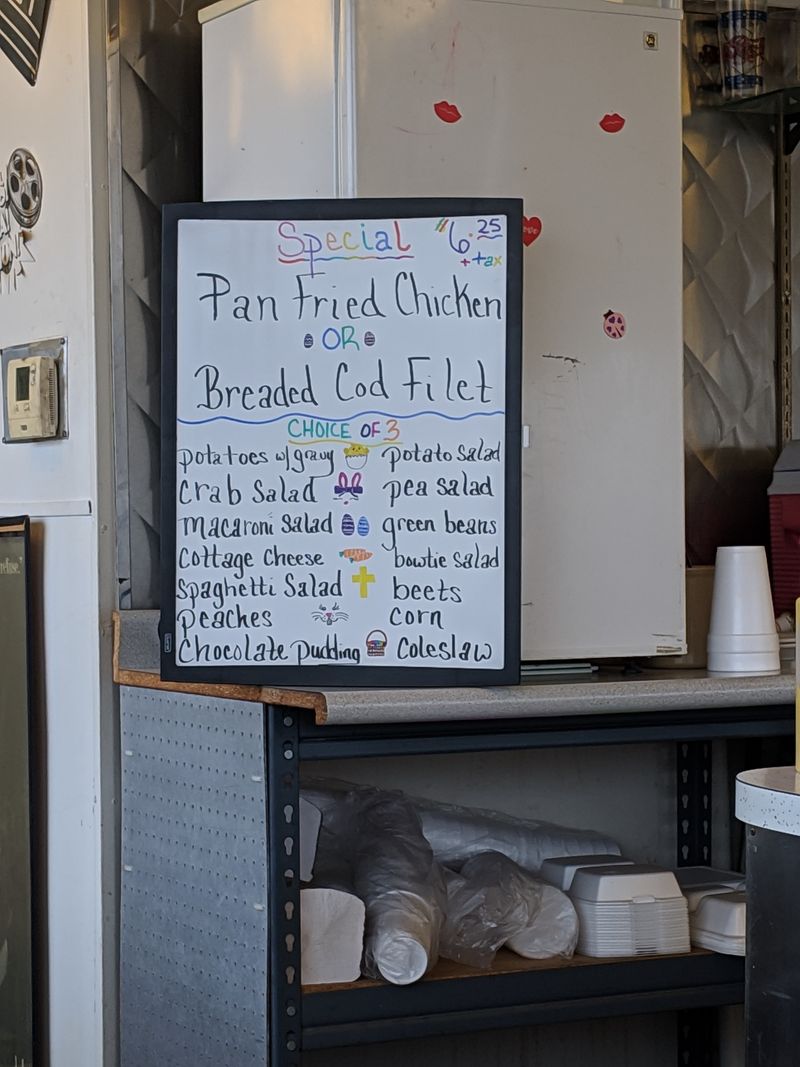 Special
6.25
+ tax
Pan Fried Chicken
OR
Breaded Cod Filet
CHOICE OF 3
potatoes w/gravy potato Salad
Crab Salad pea salad
Macaroni Salad green beans
Cottage Cheese bowtie Salad
Spaghetti Salad beets
peaches corn
Chocolate pudding Coleslaw